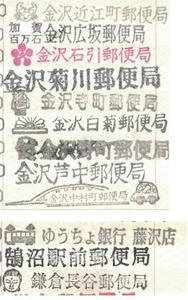 金沢近江町郵便局
加賀百万石
金沢広坂郵便局
金沢石引郵便局
金沢菊川郵便局
金沢寺町郵便局
金沢白菊郵便局
金沢野町郵便局
金沢芦中郵便局
金沢中村町郵便局
ゆうちょ銀行 藤沢店
鵠沼駅前郵便局
鎌倉長谷郵便局